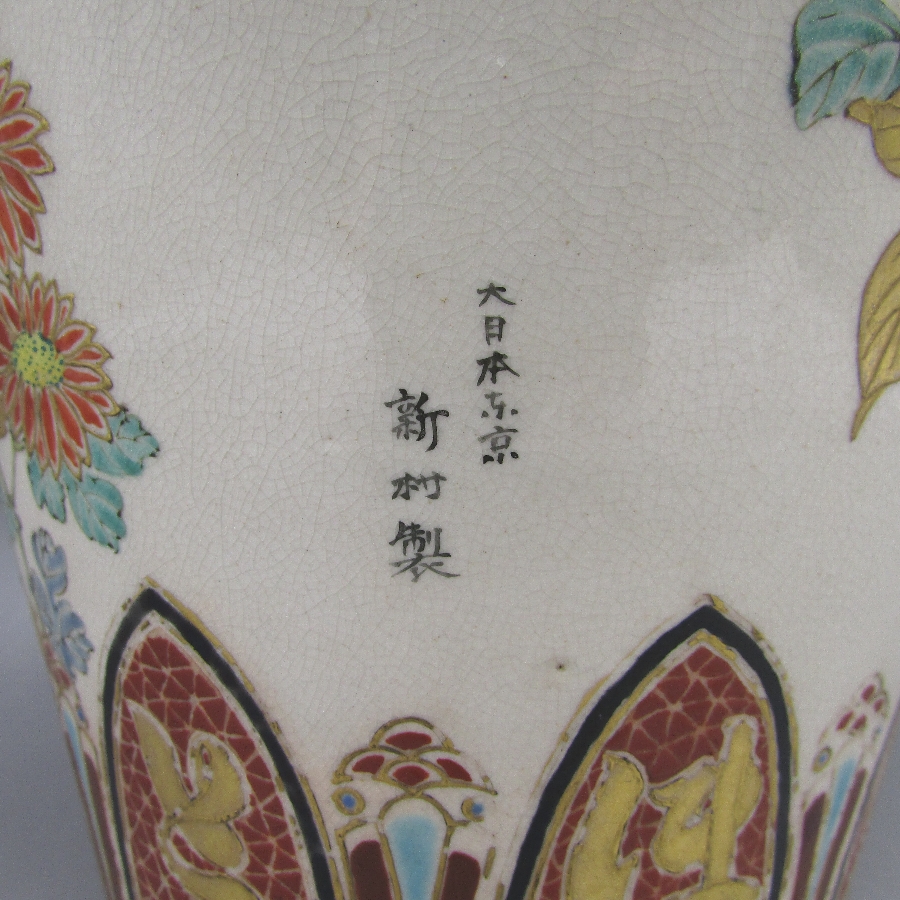 大日本东京
新村製